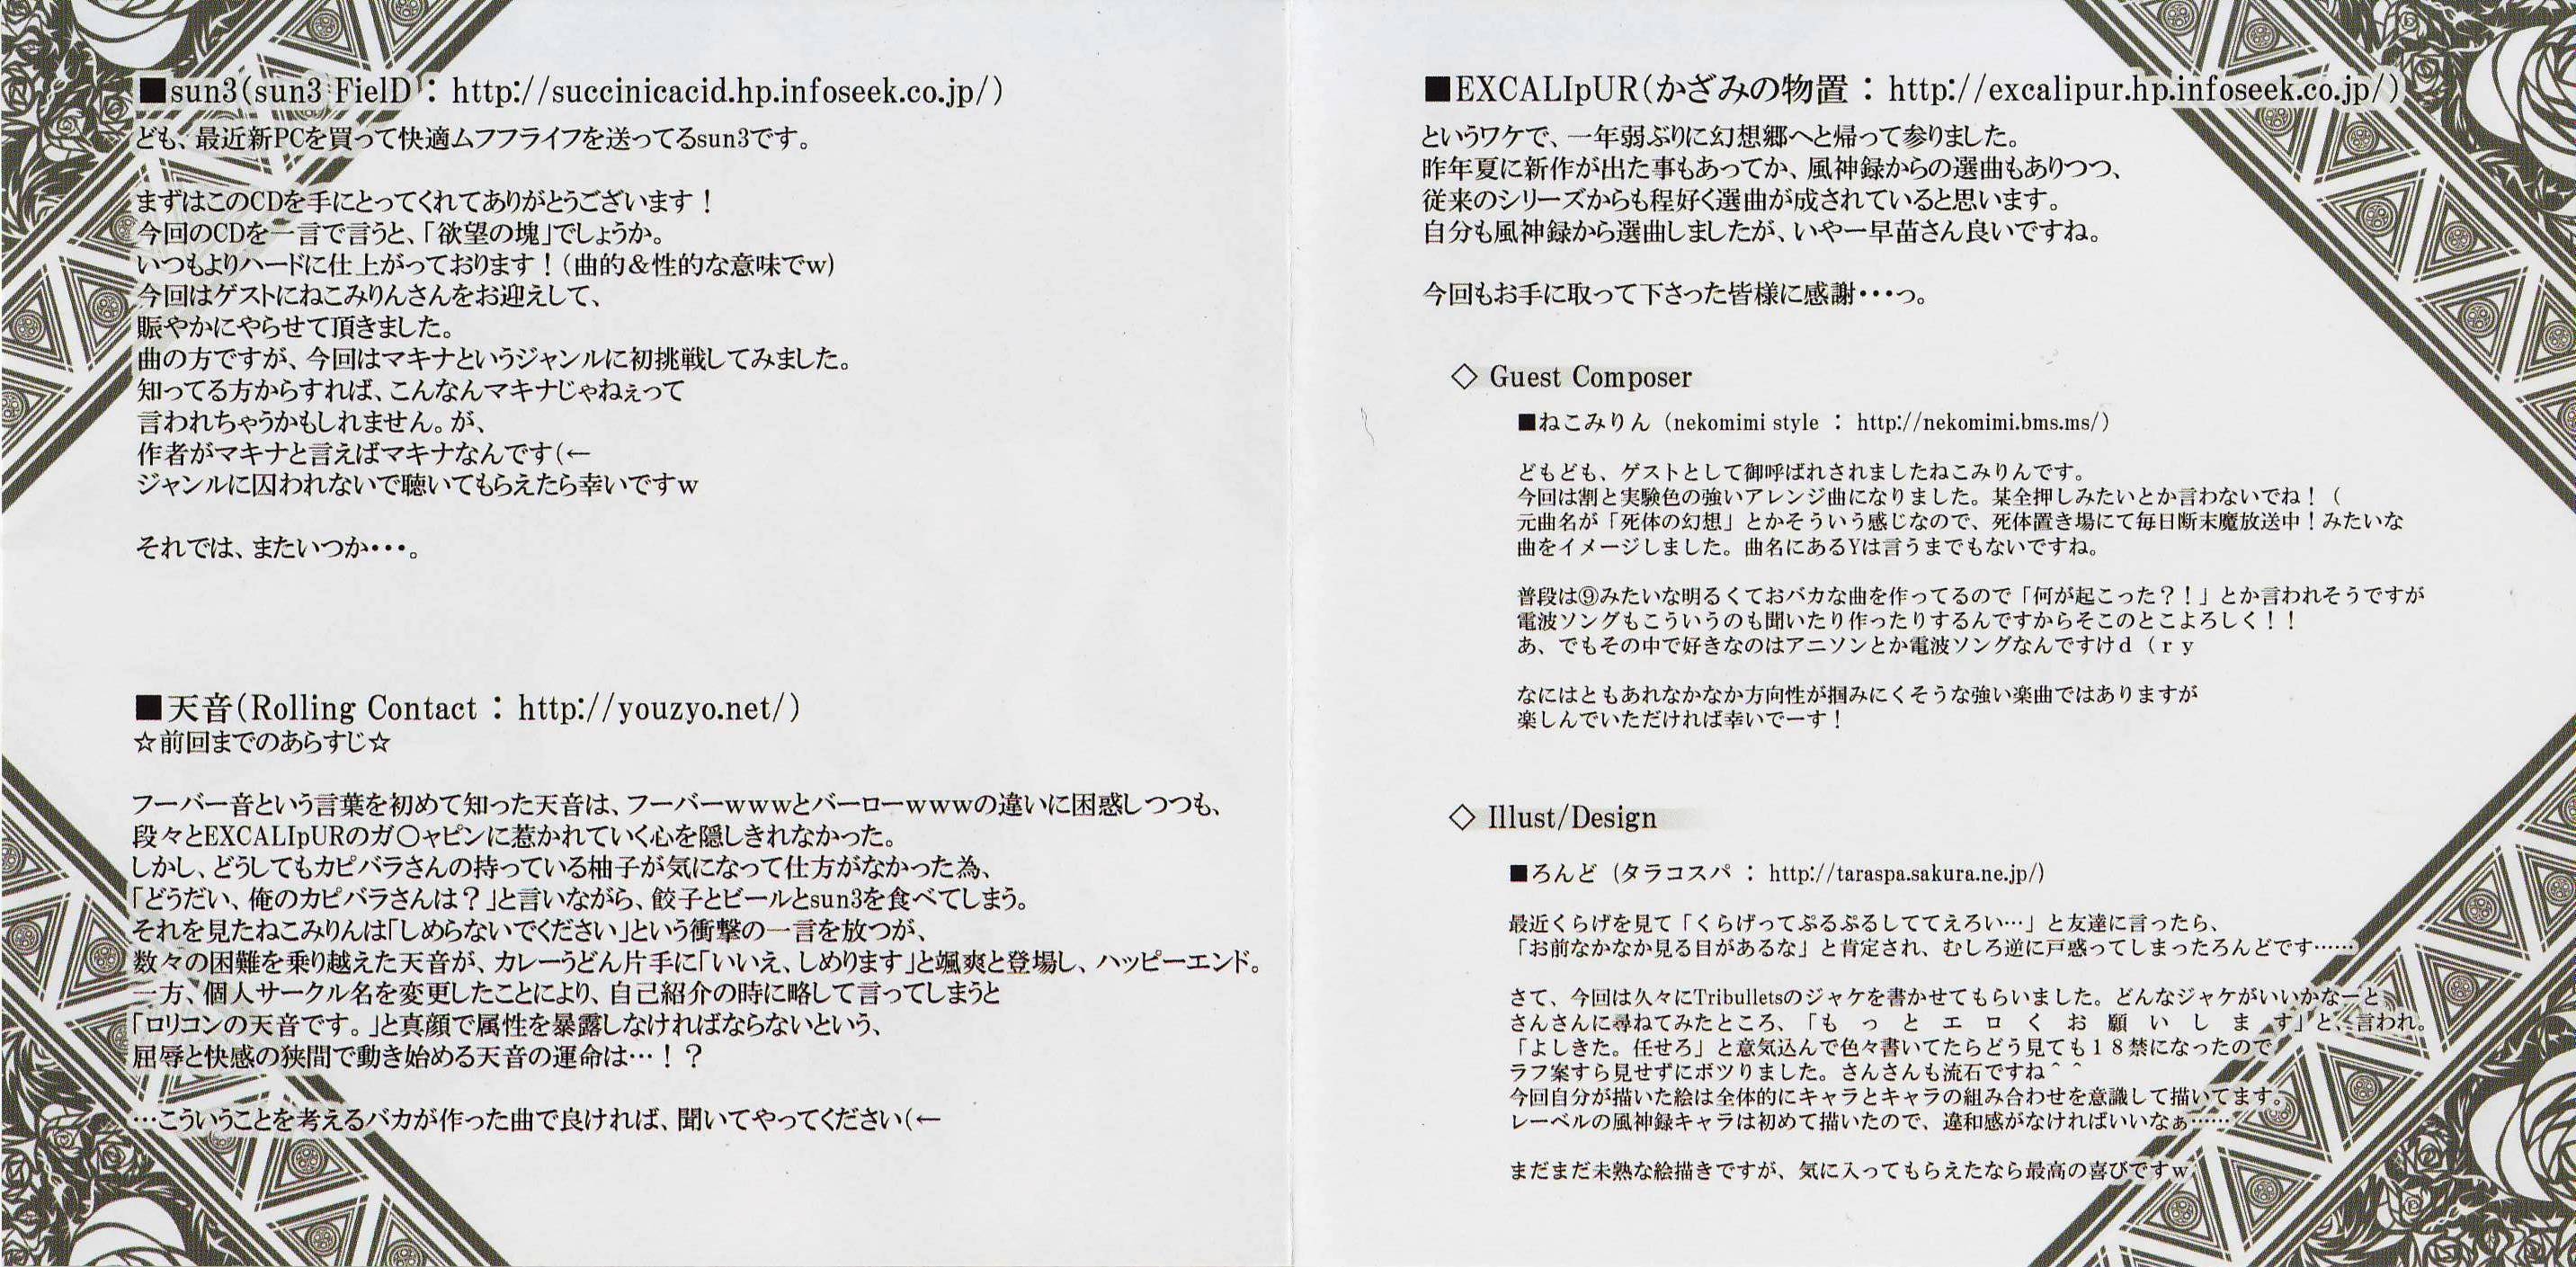 ■sun3(sun3 FielD : http://succinicacid.hp.infoseek.co.jp/)
ども、最近新PCを買って快適ムフフライフを送ってるsun3です。
まずはこのCDを手にとってくれてありがとうございます！
今回のCDを一言で言うと、「欲望の塊」でしょうか。
いつもよりハードに仕上がっております！(曲的＆性的な意味でw)
今回はゲストにねこみりんさんをお迎えして、
賑やかにやらせて頂きました。
曲の方ですが、今回はマキナというジャンルに初挑戦してみました。
知ってる方からすれば、こんなんマキナじゃねぇって
言われちゃうかもしれません。が、
作者がマキナと言えばマキナなんです(←
ジャンルに囚われないで聴いてもらえたら幸いですw
それでは、またいつか・・・。
■天音(Rolling Contact : http://youzyo.net/)
☆前回までのあらすじ☆
フーバー音という言葉を初めて知った天音は、フーバーwwwとバーローwwwの違いに困惑しつつも、
段々とEXCALIpURのガ○ャピンに惹かれていく心を隠しきれなかった。
しかし、どうしてもカピバラさんの持っている柚子が気になって仕方がなかった為、
「どうだい、俺のカピバラさんは？」と言いながら、餃子とビールとsun3を食べてしまう。
それを見たねこみりんは「しめらないでください」という衝撃の一言を放つが、
数々の困難を乗り越えた天音が、カレーうどん片手に「いいえ、しめります」と颯爽と登場し、ハッピーエンド。
一方、個人サークル名を変更したことにより、自己紹介の時に略して言ってしまうと
「ロリコンの天音です。」と真顔で属性を暴露しなければならないという、
屈辱と快感の狭間で動き始める天音の運命は…！？
…こういうことを考えるバカが作った曲で良ければ、聞いてやってください(←
■EXCALIpUR(かざみの物置 : http://excalipur.hp.infoseek.co.jp/)
というワケで、一年弱ぶりに幻想郷へと帰って参りました。
昨年夏に新作が出た事もあってか、風神録からの選曲もありつつ、
従来のシリーズからも程好く選曲が成されていると思います。
自分も風神録から選曲しましたが、いやー早苗さん良いですね。
今回もお手に取って下さった皆様に感謝・・・っ。
◇ Guest Composer
■ねこみりん (nekomimi style : http://nekomimi.bms.ms/)
どもども、ゲストとして御呼ばれされましたねこみりんです。
今回は割と実験色の強いアレンジ曲になりました。某全押しみたいとか言わないでね！（
元曲名が「死体の幻想」とかそういう感じなので、死体置き場にて毎日断末魔放送中！みたいな
曲をイメージしました。曲名にあるYは言うまでもないですね。
普段は⑨みたいな明るくておバカな曲を作ってるので「何が起こった？！」とか言われそうですが
電波ソングもこういうのも聞いたり作ったりするんですからそこのとこよろしく！！
あ、でもその中で好きなのはアニソンとか電波ソングなんですけｄ（ｒｙ
なにはともあれなかなか方向性が掴みにくそうな強い楽曲ではありますが
楽しんでいただければ幸いでーす！
◇ Illust/Design
■ろんど (タラコスパ : http://taraspa.sakura.ne.jp/)
最近くらげを見て「くらげってぷるぷるしててえろい…」と友達に言ったら、
「お前なかなか見る目があるな」と肯定され、むしろ逆に戸惑ってしまったろんどです……
さて、今回は久々にTribulletsのジャケを書かせてもらいました。どんなジャケがいいかなーと
さんさんに尋ねてみたところ、「も っ と エ ロ く お 願 い し ま す」と、言われ。
「よしきた。任せろ」と意気込んで色々書いてたらどう見ても１８禁になったので
ラフ案すら見せずにボツりました。さんさんも流石ですね＾＾
今回自分が描いた絵は全体的にキャラとキャラの組み合わせを意識して描いてます。
レーベルの風神録キャラは初めて描いたので、違和感がなければいいなぁ……
まだまだ未熟な絵描きですが、気に入ってもらえたなら最高の喜びですw